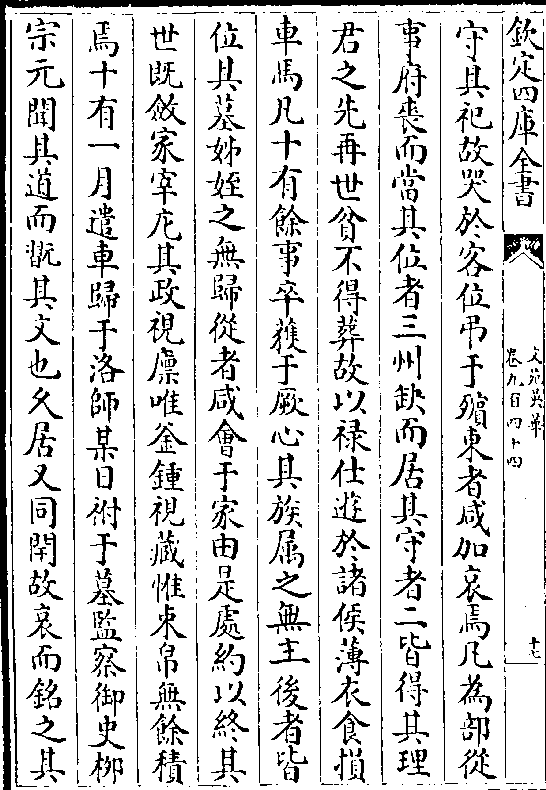 欽定四庫全書
文苑英華
卷九百四十四
十七
守其祀故哭於客位弔于殯東者咸加哀焉凡為部從
事府喪而當其位者三州缺而居其守者二皆得其理
君之先再世貧不得葬故以禄仕遊於諸侯薄衣食損
車馬凡十有餘事卒獲于厥心其族属之無主後者皆
位其墓姊姪之無歸從者咸會于家由是處約以終其
世既斂家宰庀其政視廪唯釜鍾視藏惟束帛無餘積
焉十有一月遣車歸于洛師某日祔于墓監察御史栁
宗元聞其道而翫其文也乆居又同閈故哀而銘之其